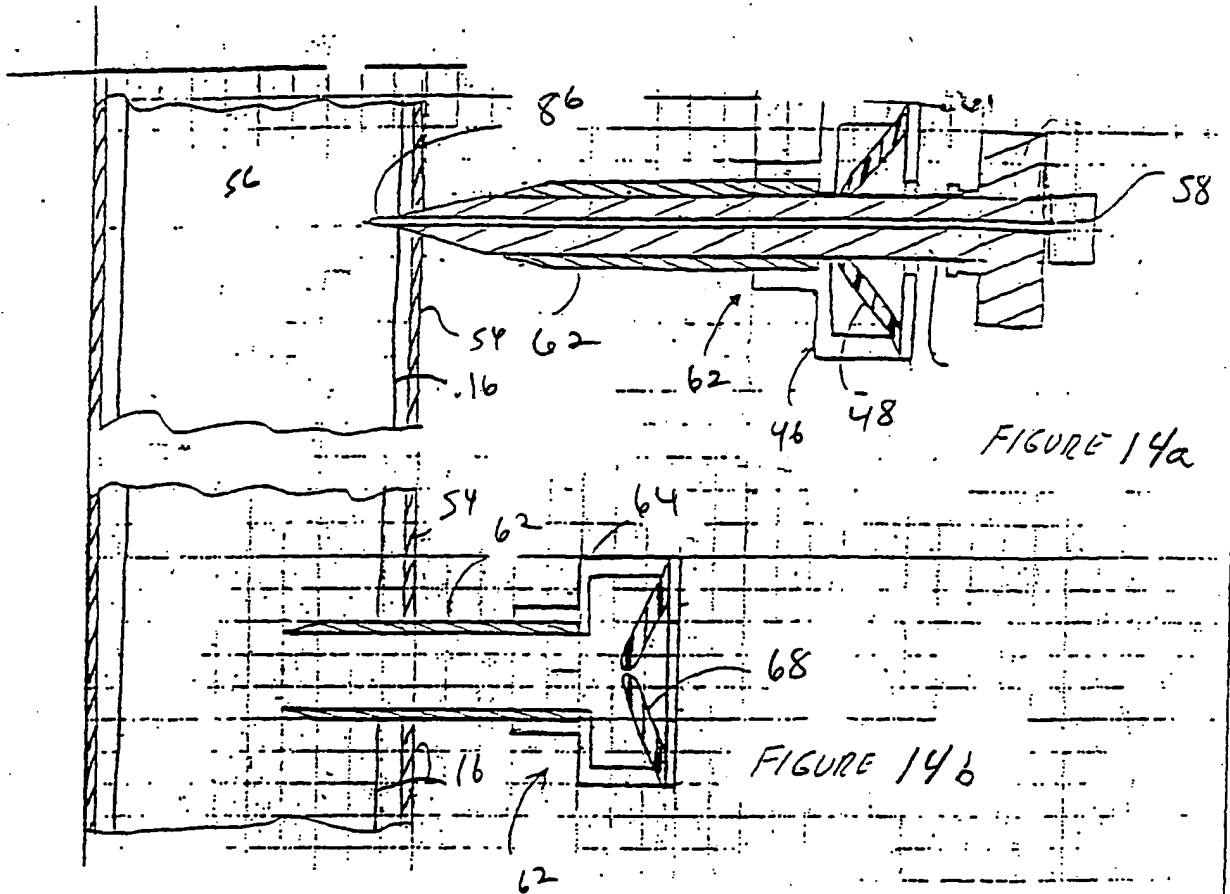 86
56
58
54
62
.16
62
46
48
FIGURE 14a
54
62
64
68
16
FIGURE 14b
62